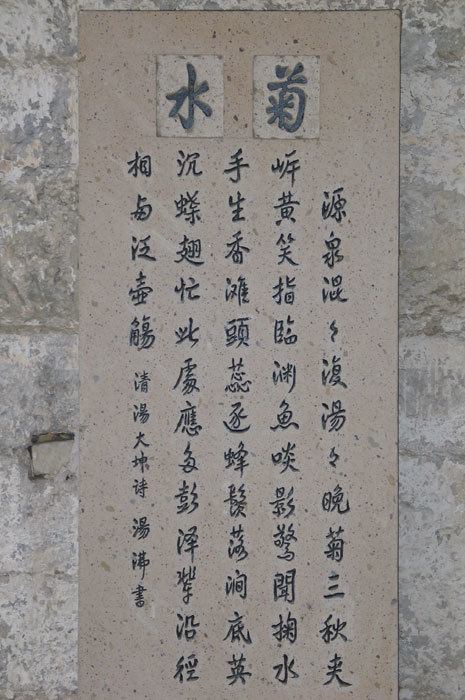 菊水
源泉混々復湯々晚菊三秋夹
岸黄笑指臨渊魚啖影驚聞掬水
手生香滩頭蕊逐蜂鬚落澗底英
沉蝶翅忙此處應多彭泽輩沿徑
相与泛壺觴 清湯大坤诗 湯沸書